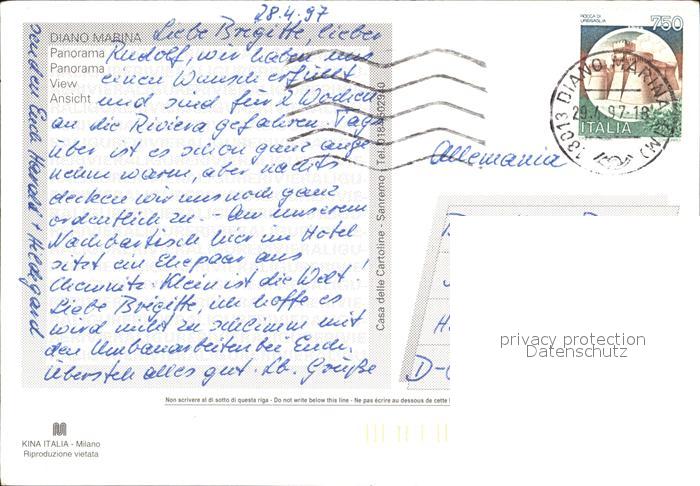 28.4.97
DIANO MARINA
Panorama
Panorama
View
Ansicht
Liebe Brigitte, lieber
Rudolf, wir haben uns
einen Wunsch erfüllt
und sind für 2 Wochen
an die Riviera gefahren. Tags
über ist es schon ganz ange
nehm warm, aber nachts
decken wir uns noch ganz
ordentlich zu. - An unserem
Nachbartisch hier im Hotel
sitzt ein Ehepaar aus
Chemnitz. Klein ist die Welt!
Liebe Brigitte, ich hoffe es
wird nicht zu schlimm mit
den Umbauarbeiten bei Euch.
Übersteh alles gut. Lb. Grüße
senden Euch Harald + Hildegard
Casa delle Cartoline - Sanremo - Tel.
ROCCA DI
URBISAGLIA
750
ITALIA
18013 DIANO MARINA (IM)
29.4.97-18
Allemania
D-
privacy protection
Datenschutz
Non scrivere al di sotto di questa riga - Do not write below this line - Ne pas écrire au dessous de cette
KINA ITALIA - Milano
Riproduzione vietata